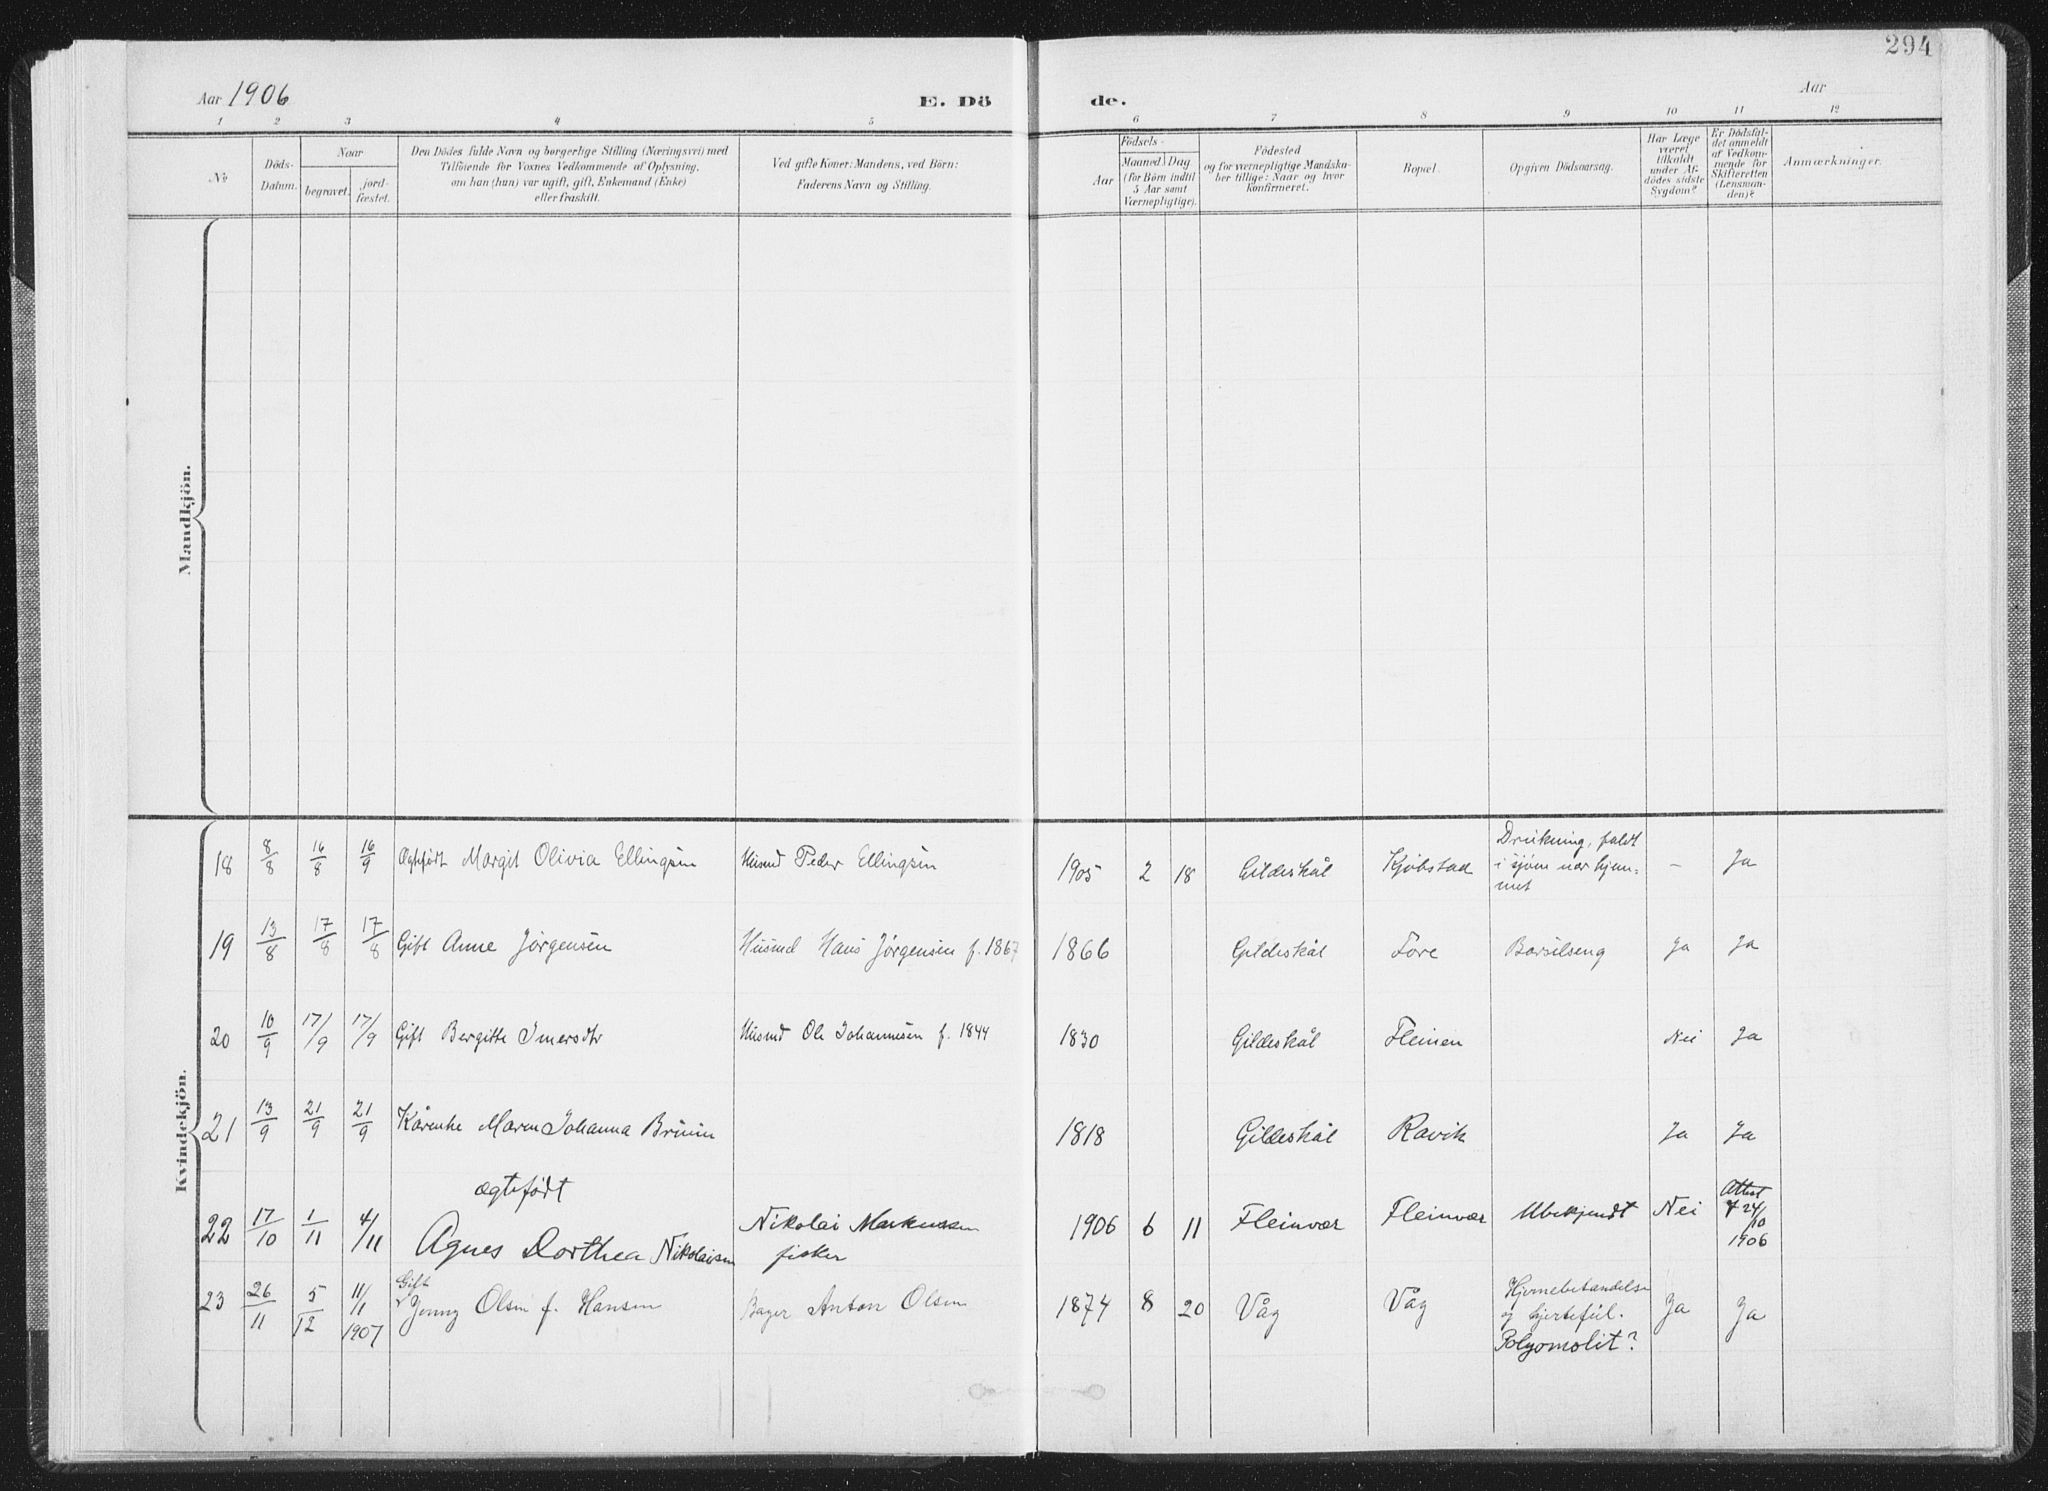 294
Aar 1906
E. Dö
de.
Aar
1 2 3 4 5 6 7 8 9 10 11 12
No
Döds-
Datum.
Naar
begravet.
jord-
fæstet.
Den Dödes fulde Navn og borgerlige Stilling (Næringsvei) med
Tilföiende for Voxnes Vedkommende af Oplysning,
om han (hun) var ugift, gift, Enkemand (Enke)
eller fraskilt.
Ved gifte Koner: Mandens, ved Börn:
Faderens Navn og Stilling.
Födsels-
Aar
Maaned. Dag
(for Börn indtil
5 Aar samt
Værnepligtige).
Födested
og for værnepligtige Mandska-
ber tillige: Naar og hvor
konfirmeret.
Bopæl.
Opgiven Dödsaarsag.
Har Læge
været
tilkaldt
under Af-
dödes sidste
Sygdom?
Er Dödsfal-
det anmeldt
af Vedkom-
mende for
Skifteretten
(Lensman-
den)?
Anmærkninger.
Mandkjön.
Kvindekjön.
18 8/8 16/8 16/9 Ægtefødt Margit Olivia Ellingsen Husmd Peder Ellingsen 1905 2 18 Gildeskål Kjøbstad Drukning, faldt
i sjøen nær hjem-
met
— Ja
19 13/8 17/8 17/8 Gift Anne Jørgensen Husmd Hans Jørgensen f. 1867 1866 Gildeskål Fore Barselseng Ja Ja
20 10/9 17/9 17/9 Gift Bergitte Imersdtr Husmd Ole Johannesen f. 1844 1830 Gildeskål Fleinen Nei Ja
21 13/9 21/9 21/9 Kårenke Maren Johanna Bruun 1818 Gildeskål Ravik Ja Ja
ægtefødt
22 17/10 1/11 4/11 Agnes Dorthea Nikolaisen Nikolai Markussen
fisker
1906 6 11 Fleinvær Fleinvær Ubekjendt Nei Attest
24/10
1906
Gift
23 26/11 5/12 11/1
1907
Jenny Olsen f. Hansen Bager Anton Olsen 1874 8 20 Våg Våg Hjernebetændelse
og hjertefeil.
Polyomolit?
Ja Ja